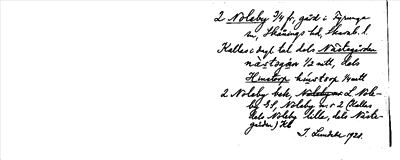 2 Noleby 3/4 fr, gård i Tyrunga
sn, Skånings hd, Skarab. l.
Kallas i dagl. tal dels Nästegården
nästəgɑn 1/2 mtl, dels
Hinstorp hinstorp 1/4 mtl
2 Noleby bek, L Nole-
by 3 l, Noleby nr 2 (Kallas
dels Noleby lille, dels Näste-
gården) Hb
I. Lundahl 1921.